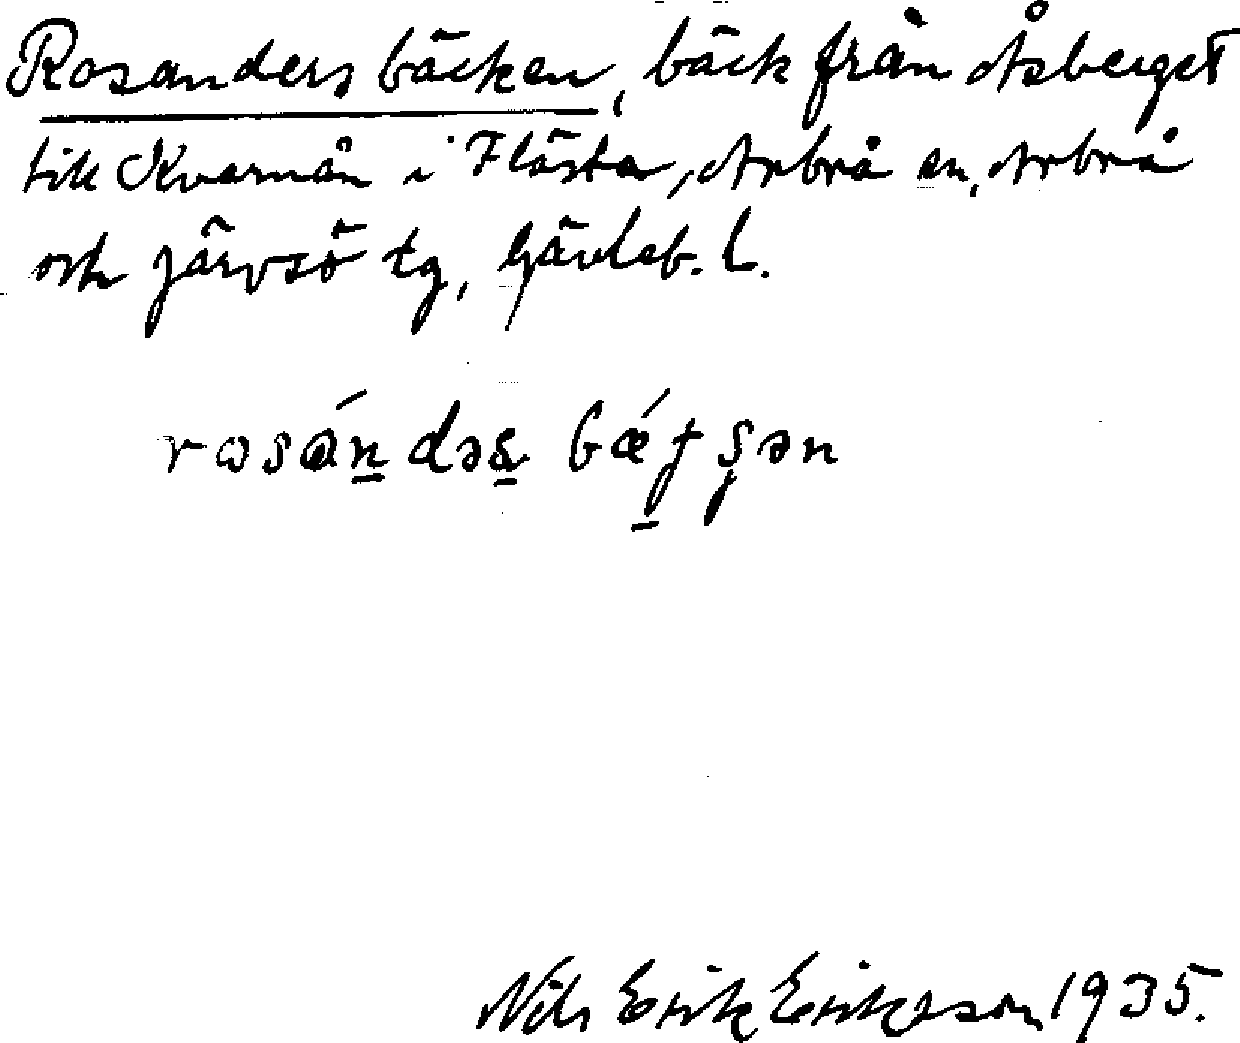 Rosanders bäcken, bäck från Åsberget
till Kvarnån i Flästa, Arbrå sn, Arbrå
och Järvsö tg, Gävleb. l.
Nils Erik Eriksson 1935.